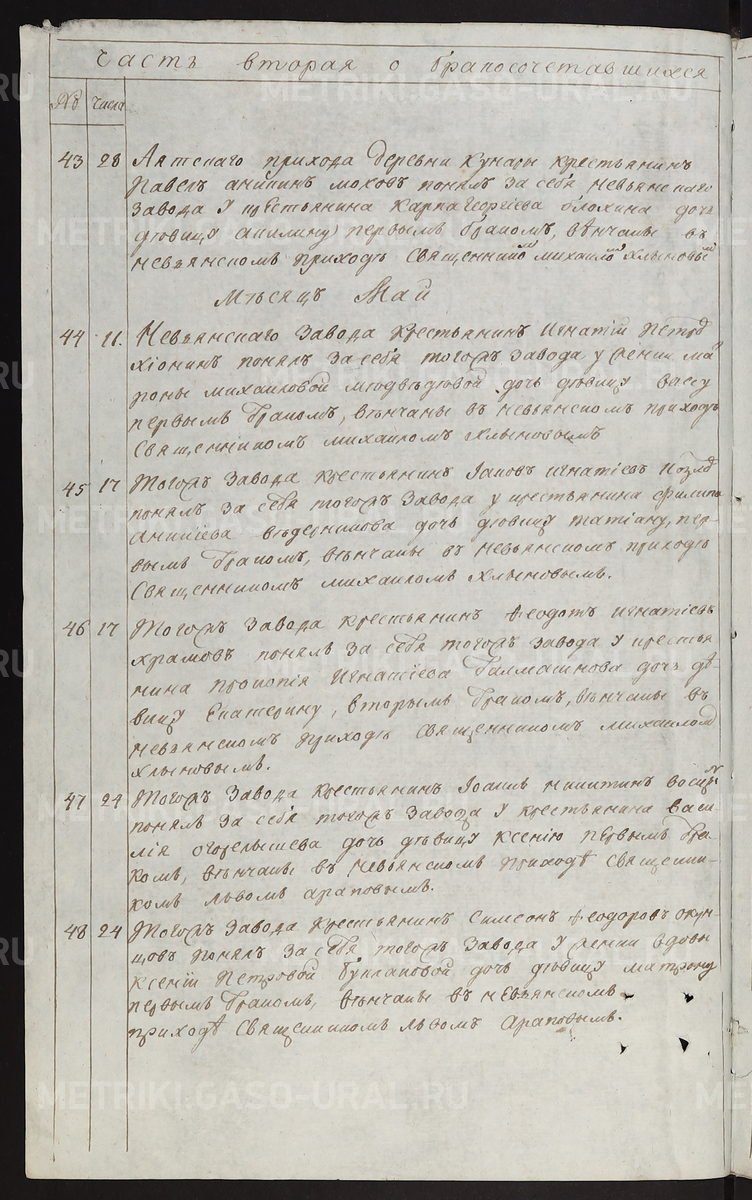 Часть вторая о бракосочетавшихся
№ Числа
43 28 Аятскаго прихода деревни Кунары крестьянинъ
Павелъ Моховъ понялъ за себя Невьянскаго
завода у крестьянина Карпа Георгіева Блохина дочь
дѣвицу Акилину первымъ бракомъ, вѣнчаны въ
Невьянскомъ приходѣ священникомъ Михаиломъ Хлыновымъ
Мѣсяцъ Май
44 11. Невьянскаго завода крестьянинъ Игнатій Петровъ
понялъ за себя тогожъ завода у женки Ма
роны Михайловой Медвѣдевой дочь дѣвицу Вассу
первымъ бракомъ, вѣнчаны въ Невьянскомъ приходѣ
священникомъ Михаиломъ Хлыновымъ
45 17 Тогожъ завода крестьянинъ Іаковъ Игнатіевъ
понялъ за себя тогожъ завода у крестьянина Филипа
Ведерникова дочь дѣвицу Татіану, пер-
вымъ бракомъ, вѣнчаны въ Невьянскомъ приходѣ
священникомъ Михаиломъ Хлыновымъ.
46 17 Тогожъ завода крестьянинъ Феодотъ Игнатіевъ
Храмовъ понялъ за себя тогожъ завода у крестья
нина Прокопія Игнатіева Балмашнова дочь дѣ
вицу Екатерину, вторымъ бракомъ, вѣнчаны въ
Невьянскомъ приходѣ священникомъ Михаиломъ
Хлыновымъ.
47 24 Тогожъ завода крестьянинъ Іоаннъ Никитинъ
понялъ за себя тогожъ завода у крестьянина Васи
лія дочь дѣвицу Ксенію первымъ бра-
комъ, вѣнчаны въ Невьянскомъ приходѣ священни-
комъ Львомъ Араповымъ.
48 24 Тогожъ завода крестьянинъ Симеонъ Феодоровъ Окун-
цовъ понялъ за себя тогожъ завода у женки вдовы
Ксеніи Петровой дочь дѣвицу Матрону
первымъ бракомъ, вѣнчаны въ Невьянскомъ
приходѣ священникомъ Львомъ Араповымъ.
METRIKI.GASO-URAL.RU